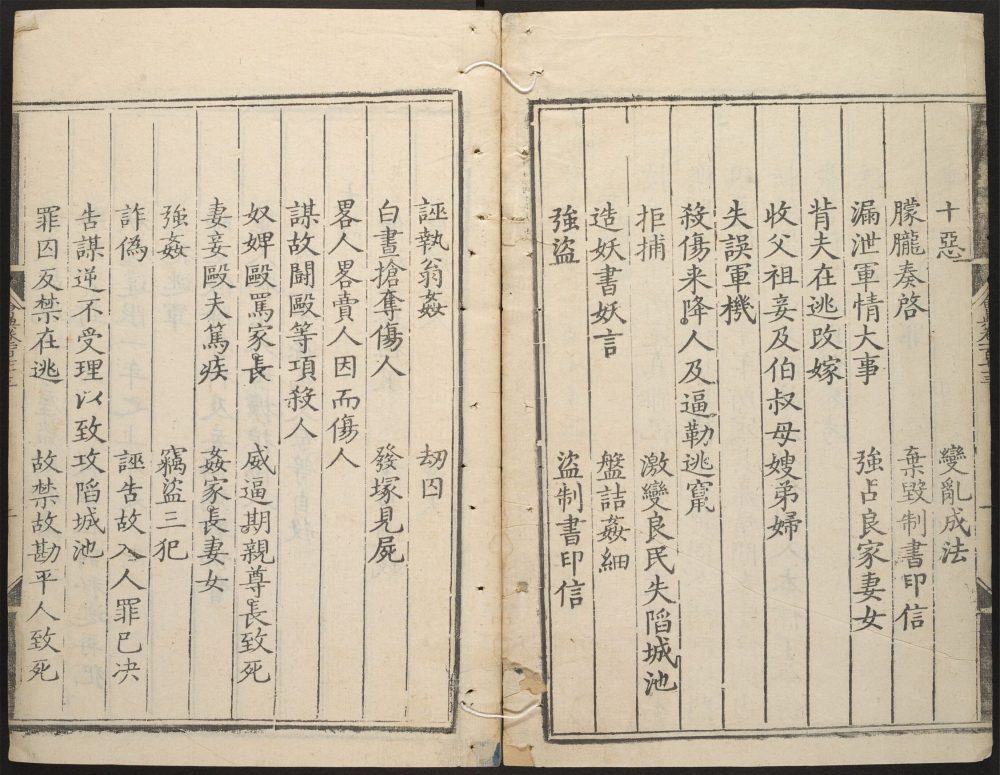 十惡　變亂成法
朦朧奏啓　棄毀制書印信
漏泄軍情大事　強占良家妻女
背夫在逃改嫁
收父祖妾及伯叔母嫂弟婦
失誤軍機
殺傷来降人及逼勒逃竄
拒捕　激變良民失陷城池
造妖書妖言　盤詰姦細
強盜　盜制書印信
誣執翁姦　劫囚
白晝搶奪傷人　發塚見屍
畧人畧賣人因而傷人
謀故鬪毆等項殺人
奴婢毆罵家長　威逼期親尊長致死
妻妾毆夫篤疾　姦家長妻女
強姦　竊盜三犯
詐偽　誣告故入人罪已决
告謀逆不受理以致攻陷城池
罪囚反禁在逃　故禁故勘平人致死